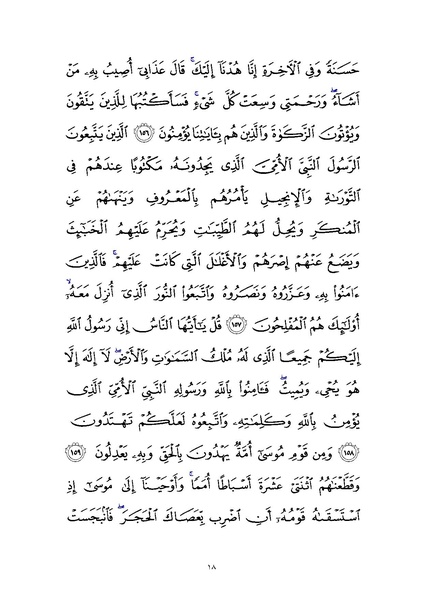 حَسَنَةً وَفِي ٱلْأَخِرَةِ إِنَّا هُدْنَآ إِلَيْكَۚ قَالَ عَذَابِىٓ أُصِيبُ بِهِۦ مَنْ
أَشَآءُۖ وَرَحْمَتِى وَسِعَتْ كُلَّ شَىْءٍۚ فَسَأَكْتُبُهَا لِلَّذِينَ يَتَّقُونَ
وَيُؤْتُونَ ٱلزَّكَوٰةَ وَٱلَّذِينَ هُم بِـَٔايَٰتِنَا يُؤْمِنُونَ ١٥٦ ٱلَّذِينَ يَتَّبِعُونَ
ٱلرَّسُولَ ٱلنَّبِىَّ ٱلْأُمِّىَّ ٱلَّذِى يَجِدُونَهُۥ مَكْتُوبًا عِندَهُمْ فِى
ٱلتَّوْرَىٰةِ وَٱلْإِنجِيلِ يَأْمُرُهُم بِٱلْمَعْرُوفِ وَيَنْهَىٰهُمْ عَنِ
ٱلْمُنكَرِ وَيُحِلُّ لَهُمُ ٱلطَّيِّبَٰتِ وَيُحَرِّمُ عَلَيْهِمُ ٱلْخَبَٰٓئِثَ
وَيَضَعُ عَنْهُمْ إِصْرَهُمْ وَٱلْأَغْلَٰلَ ٱلَّتِى كَانَتْ عَلَيْهِمْۚ فَٱلَّذِينَ
ءَامَنُوا۟ بِهِۦ وَعَزَّرُوهُ وَنَصَرُوهُ وَٱتَّبَعُوا۟ ٱلنُّورَ ٱلَّذِىٓ أُنزِلَ مَعَهُۥٓۙ
أُو۟لَٰٓئِكَ هُمُ ٱلْمُفْلِحُونَ ١٥٧ قُلْ يَٰٓأَيُّهَا ٱلنَّاسُ إِنِّى رَسُولُ ٱللَّهِ
إِلَيْكُمْ جَمِيعًا ٱلَّذِى لَهُۥ مُلْكُ ٱلسَّمَٰوَٰتِ وَٱلْأَرْضِۖ لَآ إِلَٰهَ إِلَّا
هُوَ يُحْىِۦ وَيُمِيتُۖ فَـَٔامِنُوا۟ بِٱللَّهِ وَرَسُولِهِ ٱلنَّبِىِّ ٱلْأُمِّىِّ ٱلَّذِى
يُؤْمِنُ بِٱللَّهِ وَكَلِمَٰتِهِۦ وَٱتَّبِعُوهُ لَعَلَّكُمْ تَهْتَدُونَ
١٥٨ وَمِن قَوْمِ مُوسَىٰٓ أُمَّةٌ يَهْدُونَ بِٱلْحَقِّ وَبِهِۦ يَعْدِلُونَ ١٥٩
وَقَطَّعْنَٰهُمُ ٱثْنَتَىْ عَشْرَةَ أَسْبَاطًا أُمَمًاۚ وَأَوْحَيْنَآ إِلَىٰ مُوسَىٰٓ إِذِ
ٱسْتَسْقَىٰهُ قَوْمُهُۥٓ أَنِ ٱضْرِب بِّعَصَاكَ ٱلْحَجَرَۖ فَٱنۢبَجَسَتْ
١٨